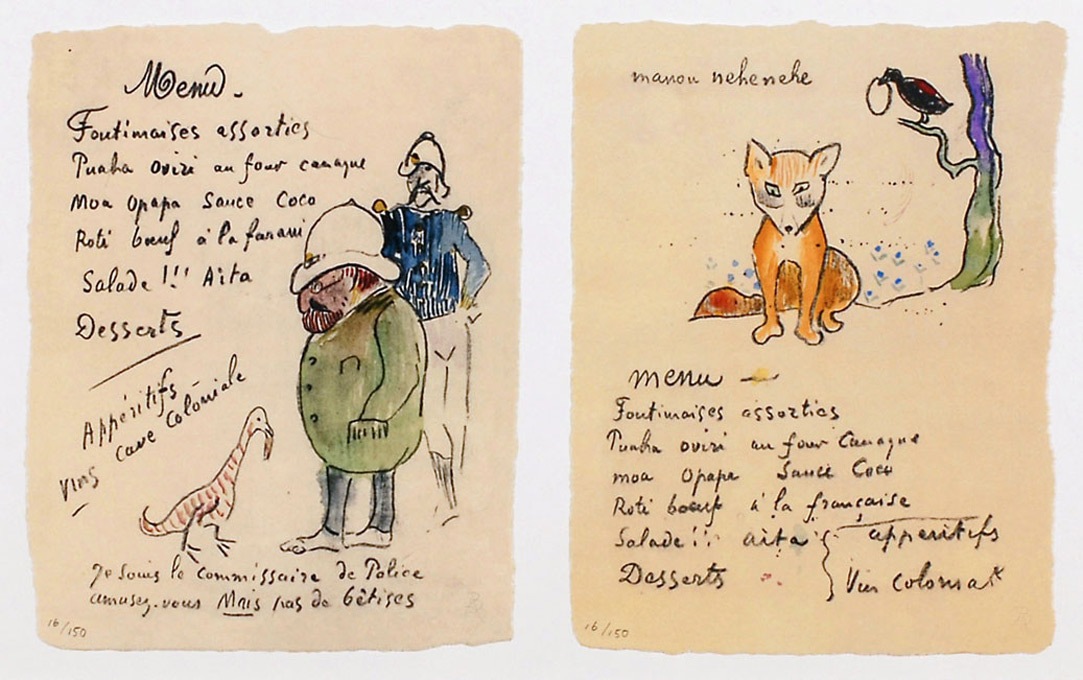 Menu.
Foutimaises assorties
Puaha oviri au four canaque
Moa Opapa Sauce Coco
Roti bœuf à la farani
Salade !!! Aita
Desserts
Appéritifs
Vins cave Coloniale
Je suis le Commissaire de Police
amusez-vous Mais pas de bêtises
16/150
manou nehenehe
menu
Foutimaises assorties
Puaha oviri au four Canaque
moa Opapa Sauce Coco
Roti bœuf à la française
Salade !!! aita apperitifs
Desserts Vin colonial
16/150